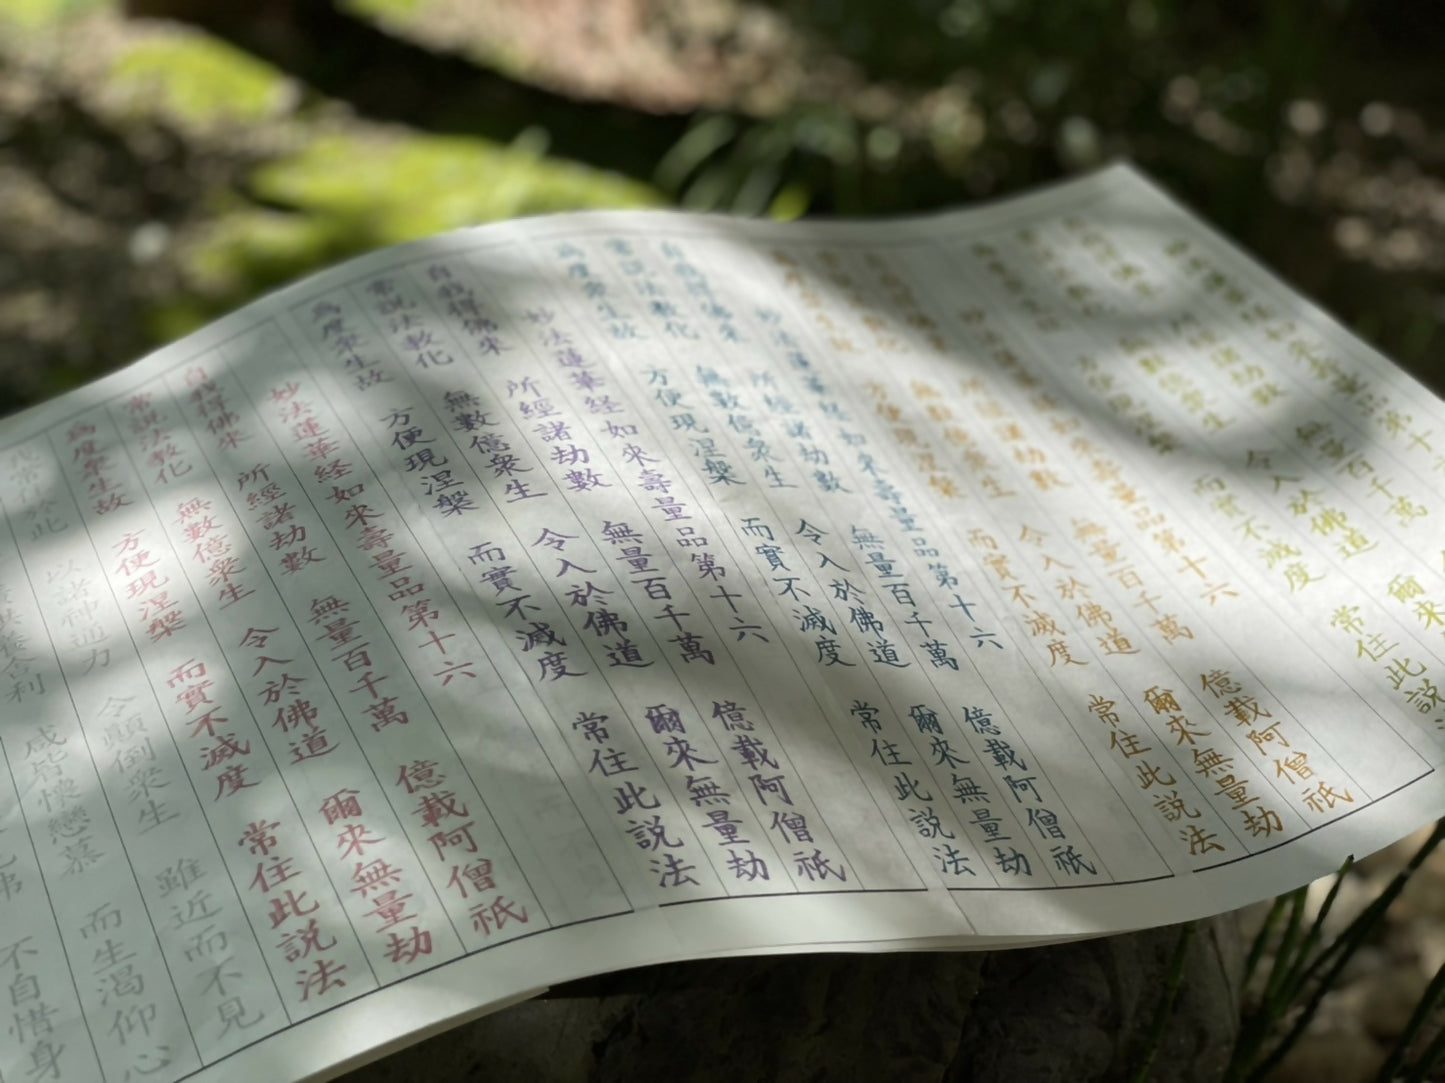 第十
諸劫數 無量百千萬
億衆生 令入於佛道 爾來
而實不滅度 常住此説
如來壽量品第十六
諸劫數 無量百千萬 億載阿僧祇
無數億衆生 令入於佛道 爾來無量劫
方便現涅槃 而實不滅度 常住此説法
妙法蓮華経如來壽量品第十六
自我得佛來 所經諸劫數 無量百千萬 億載阿僧祇
常説法教化 無數億衆生 令入於佛道 爾來無量劫
為度衆生故 方便現涅槃 而實不滅度 常住此説法
妙法蓮華経如來壽量品第十六
自我得佛來 所經諸劫數 無量百千萬 億載阿僧祇
常説法教化 無數億衆生 令入於佛道 爾來無量劫
為度衆生故 方便現涅槃 而實不滅度 常住此説法
妙法蓮華経如來壽量品第十六
自我得佛來 所經諸劫數 無量百千萬 億載阿僧祇
常説法教化 無數億衆生 令入於佛道 爾來無量劫
為度衆生故 方便現涅槃 而實不滅度 常住此説法
我常住於此 以諸神通力 令顛倒衆生 雖近而不見
供養舍利 咸皆懷戀慕 而生渇仰心
見佛 不自惜身